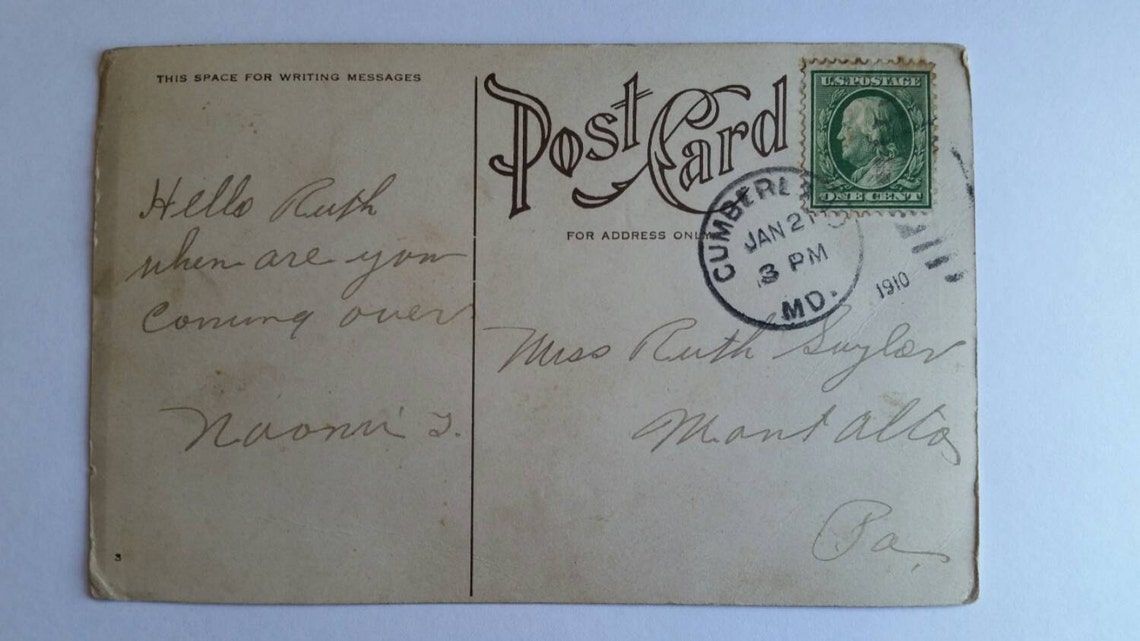 THIS SPACE FOR WRITING MESSAGES
Post Card
FOR ADDRESS ONLY
U.S. POSTAGE
ONE CENT
CUMBERL
JAN 21
3 PM
MD.
1910
Hello Ruth
when are you
coming over
Naomi
Miss Ruth
Mont Alto
Pa
3